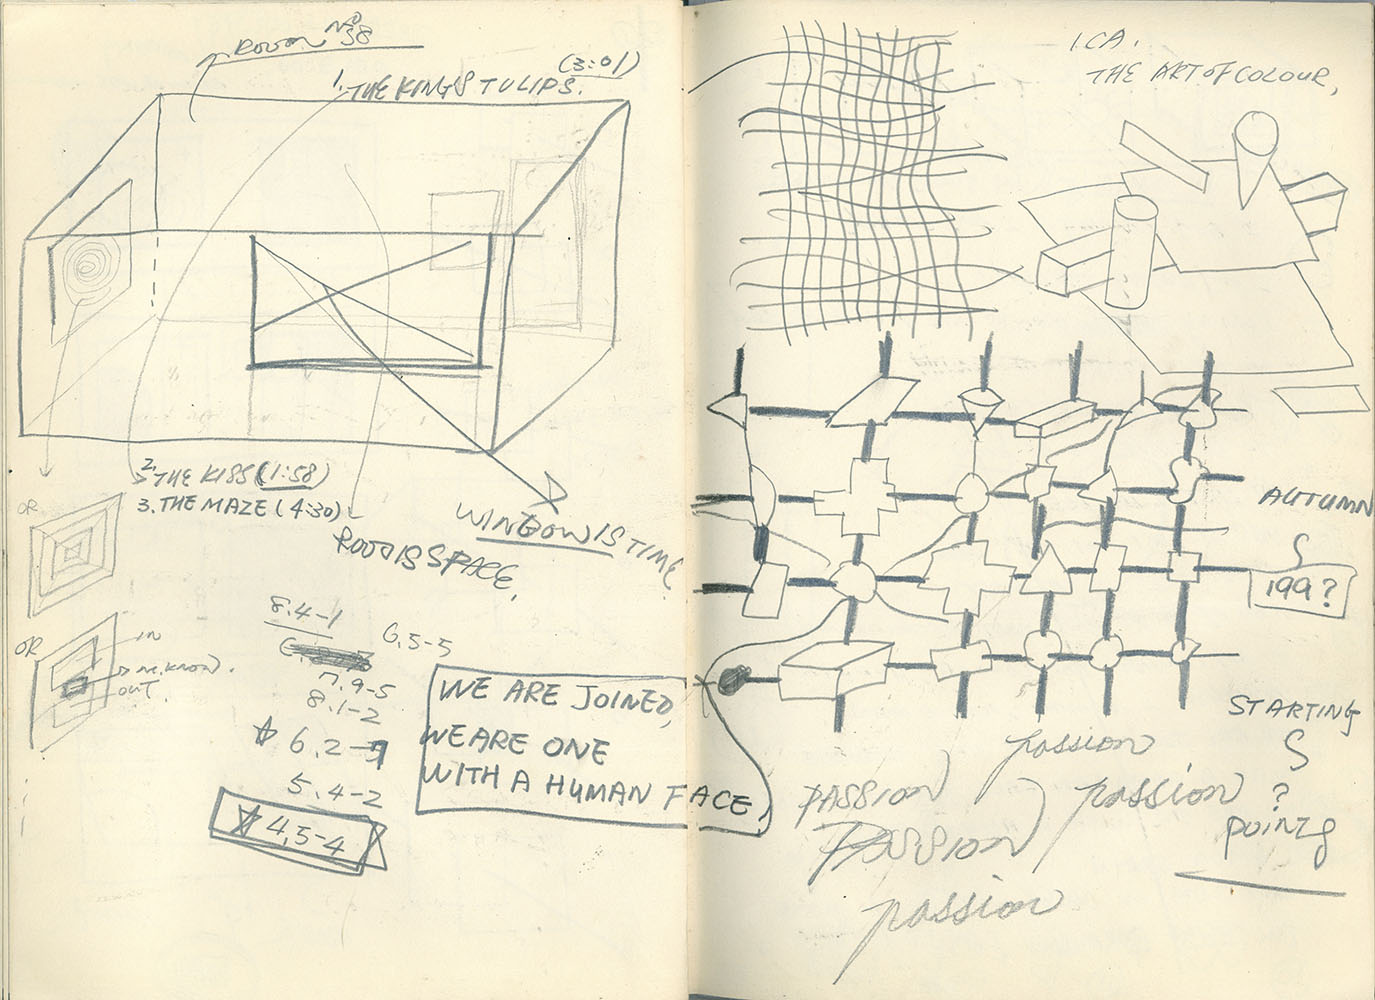 ROOM NO 38
(3:01)
1. THE KING'S TULIPS.
2. THE KISS (1:58)
3. THE MAZE (4:30)
WINDOW IS TIME
ROOM IS SPACE,
OR
OR
IN
OUT
8.4-1
6.5-5
7.9-5
8.1-2
6.2-
5.4-2
4.5-4
WE ARE JOINED,
WE ARE ONE
WITH A HUMAN FACE
I.CA.
THE ART OF COLOUR,
AUTUMN
199?
STARTING
?
points
passion
PASSION
passion
Passion
passion